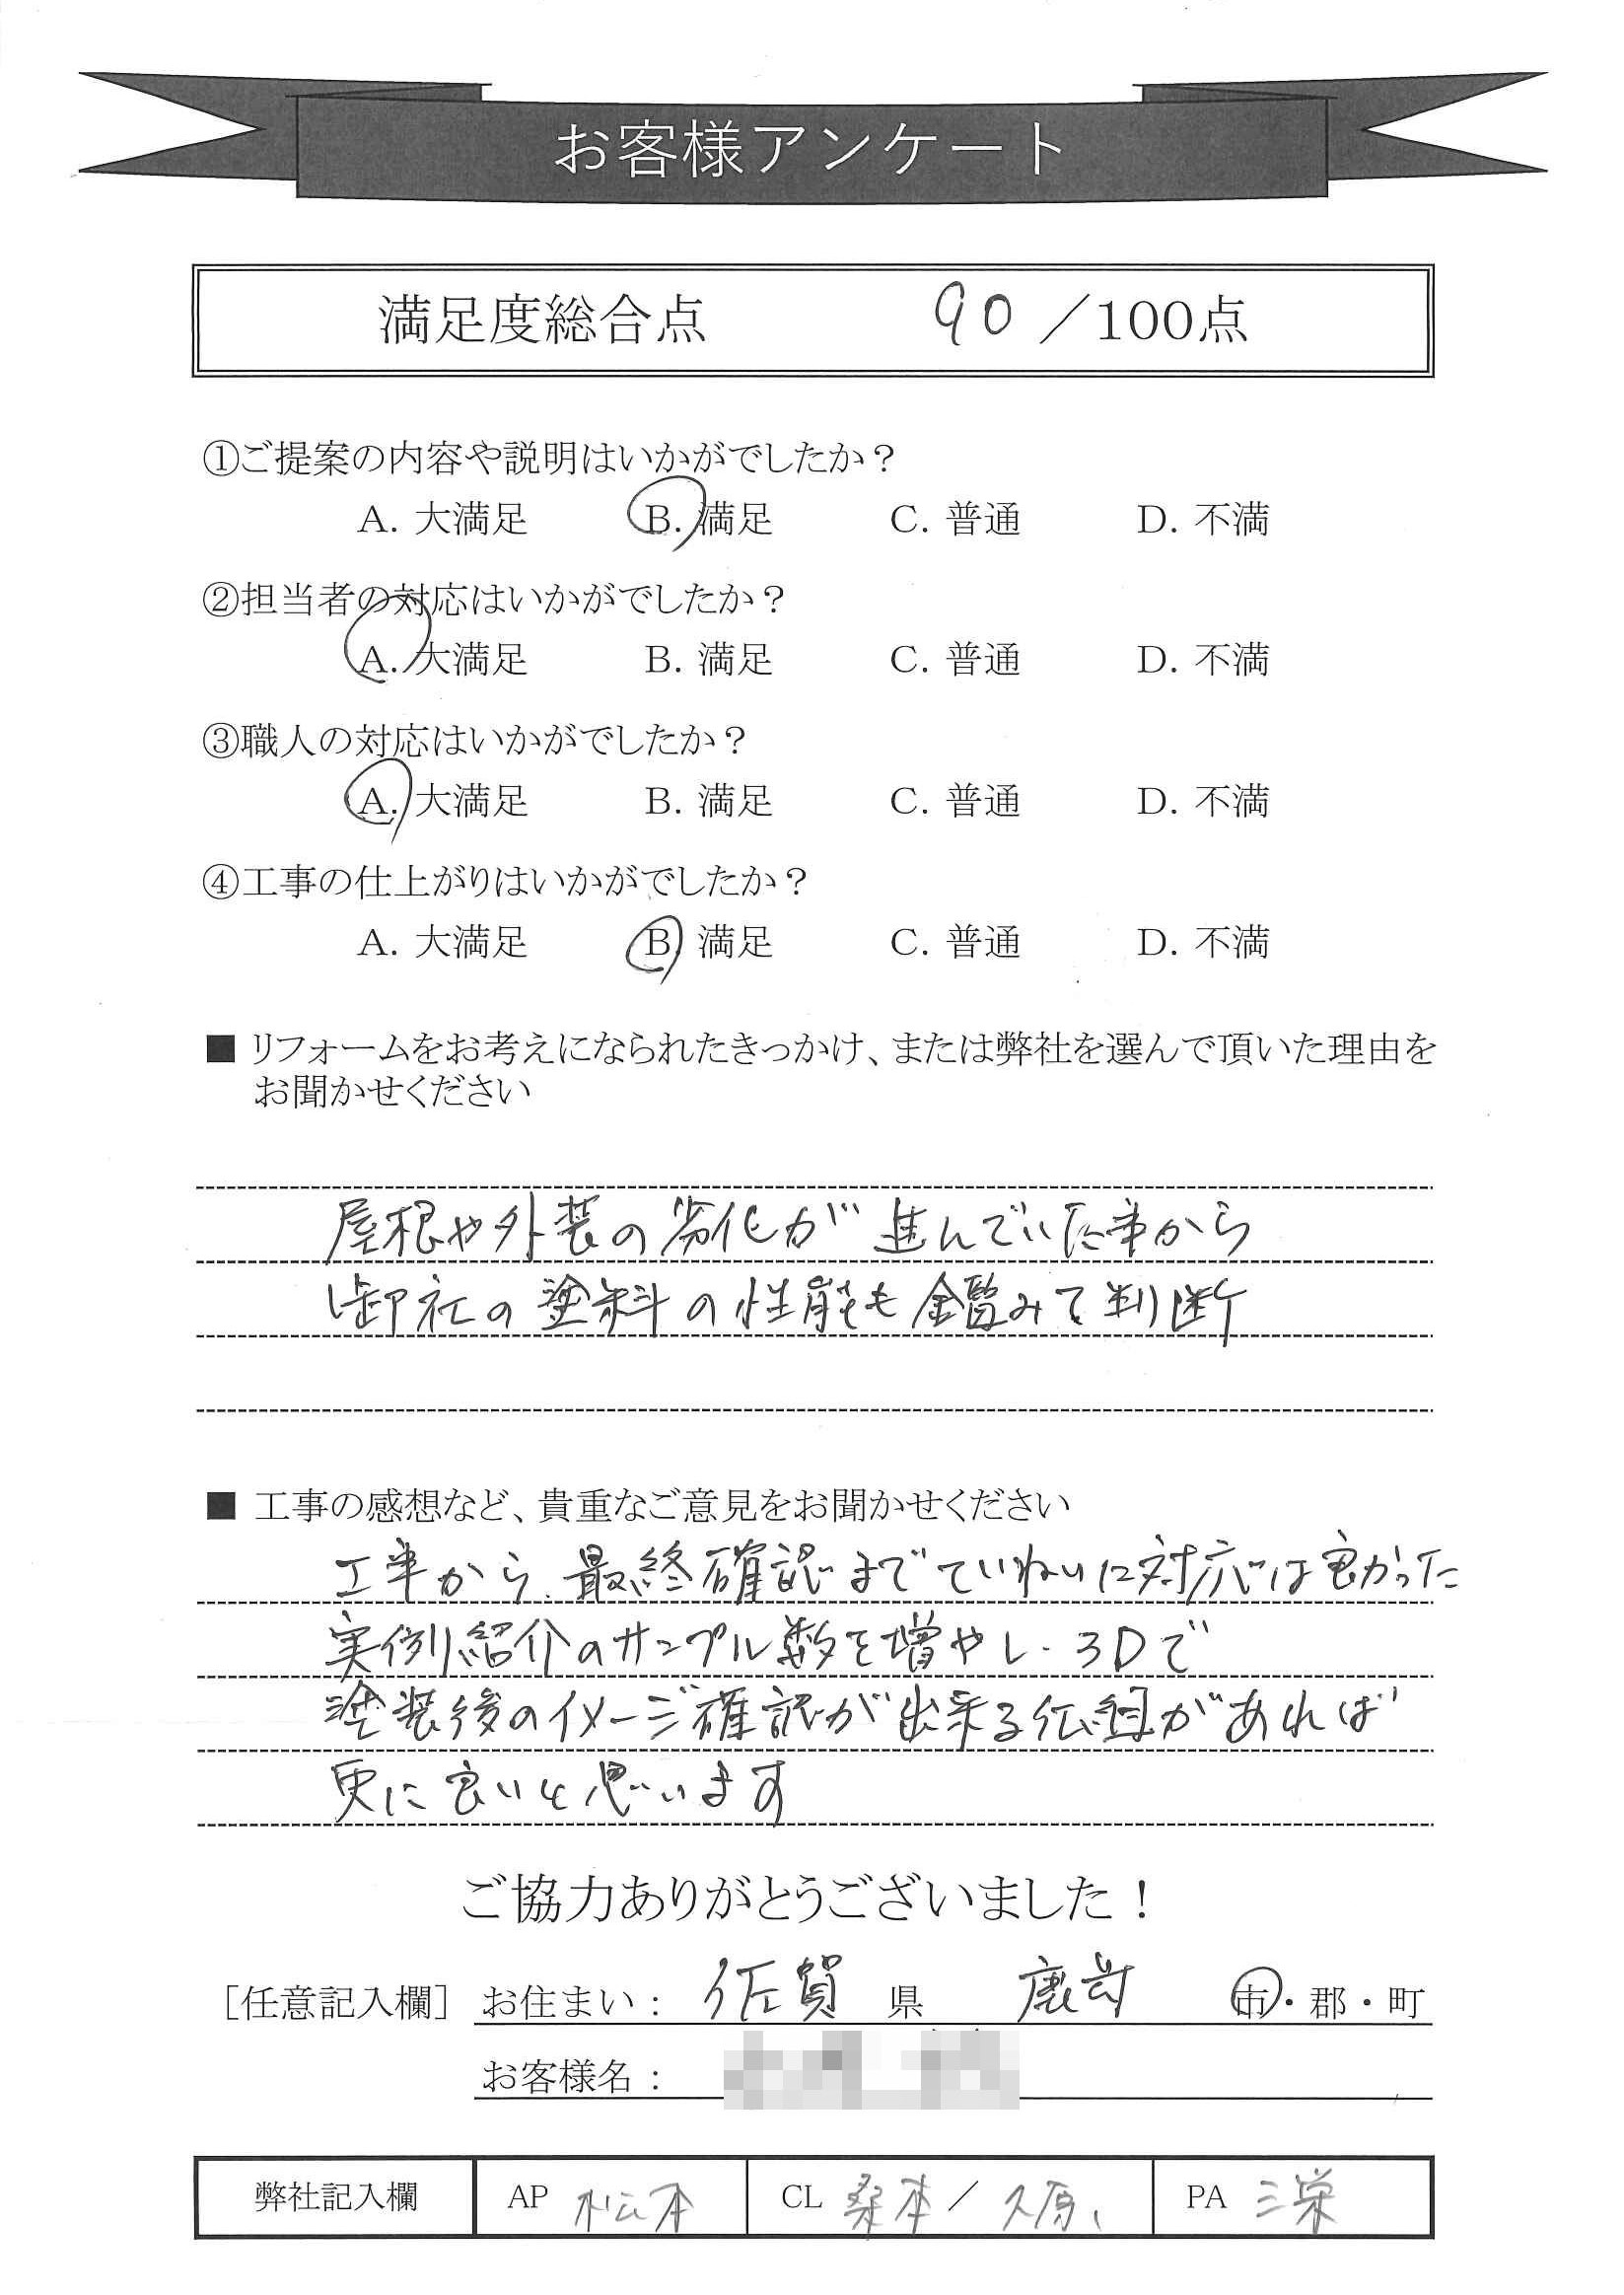 お客様アンケート
満足度総合点 90／100点
①ご提案の内容や説明はいかがでしたか？
A. 大満足 B. 満足 C. 普通 D. 不満
②担当者の対応はいかがでしたか？
A. 大満足 B. 満足 C. 普通 D. 不満
③職人の対応はいかがでしたか？
A. 大満足 B. 満足 C. 普通 D. 不満
④工事の仕上がりはいかがでしたか？
A. 大満足 B. 満足 C. 普通 D. 不満
■ リフォームをお考えになられたきっかけ、または弊社を選んで頂いた理由を
お聞かせください
屋根や外装の劣化が進んでいた事から
御社の塗料の性能も鑑みて判断
■ 工事の感想など、貴重なご意見をお聞かせください
工事から、最終確認までていねいに対応は良かった
実例紹介のサンプル数を増やし、3Dで
塗装後のイメージ確認が出来る仕組があれば
更に良いと思います
ご協力ありがとうございました！
［任意記入欄］ お住まい： 佐賀 県 鹿島 市・郡・町
お客様名：
弊社記入欄 AP 松本 CL 桑本／久原 PA 三栄